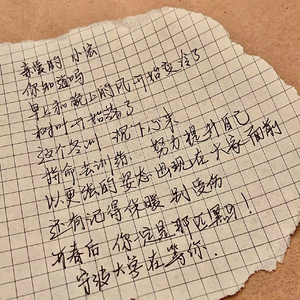 亲爱的 小宏
你知道吗
早上和晚上的风开始变冷了
树叶开始落了
这个冬训 沉下心来
拼命去训练，努力提升自己
以更强的姿态出现在大家面前
还有记得保暖 别受伤
开春后 你还是那匹黑马！
宁波大学在等你.